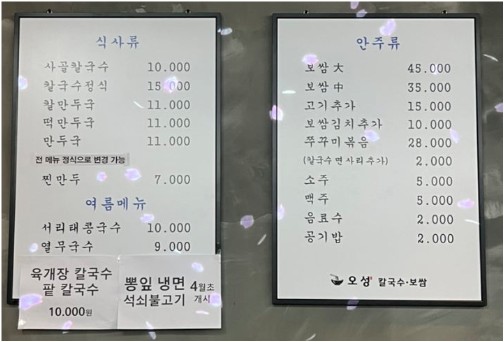 식사류
사골칼국수 10.000
칼국수정식 15.000
칼만두국 11.000
떡만두국 11.000
만두국 11.000
전 메뉴 정식으로 변경 가능
찐만두 7.000
여름메뉴
서리태콩국수 10.000
열무국수 9.000
육개장 칼국수
팥 칼국수
10.000원
뽕잎 냉면 4월초
석쇠불고기 개시
안주류
보쌈 大 45.000
보쌈 中 35.000
고기추가 15.000
보쌈김치추가 10.000
쭈꾸미볶음 28.000
(칼국수면사리추가) 2.000
소주 5.000
맥주 5.000
음료수 2.000
공기밥 2.000
오성 칼국수·보쌈